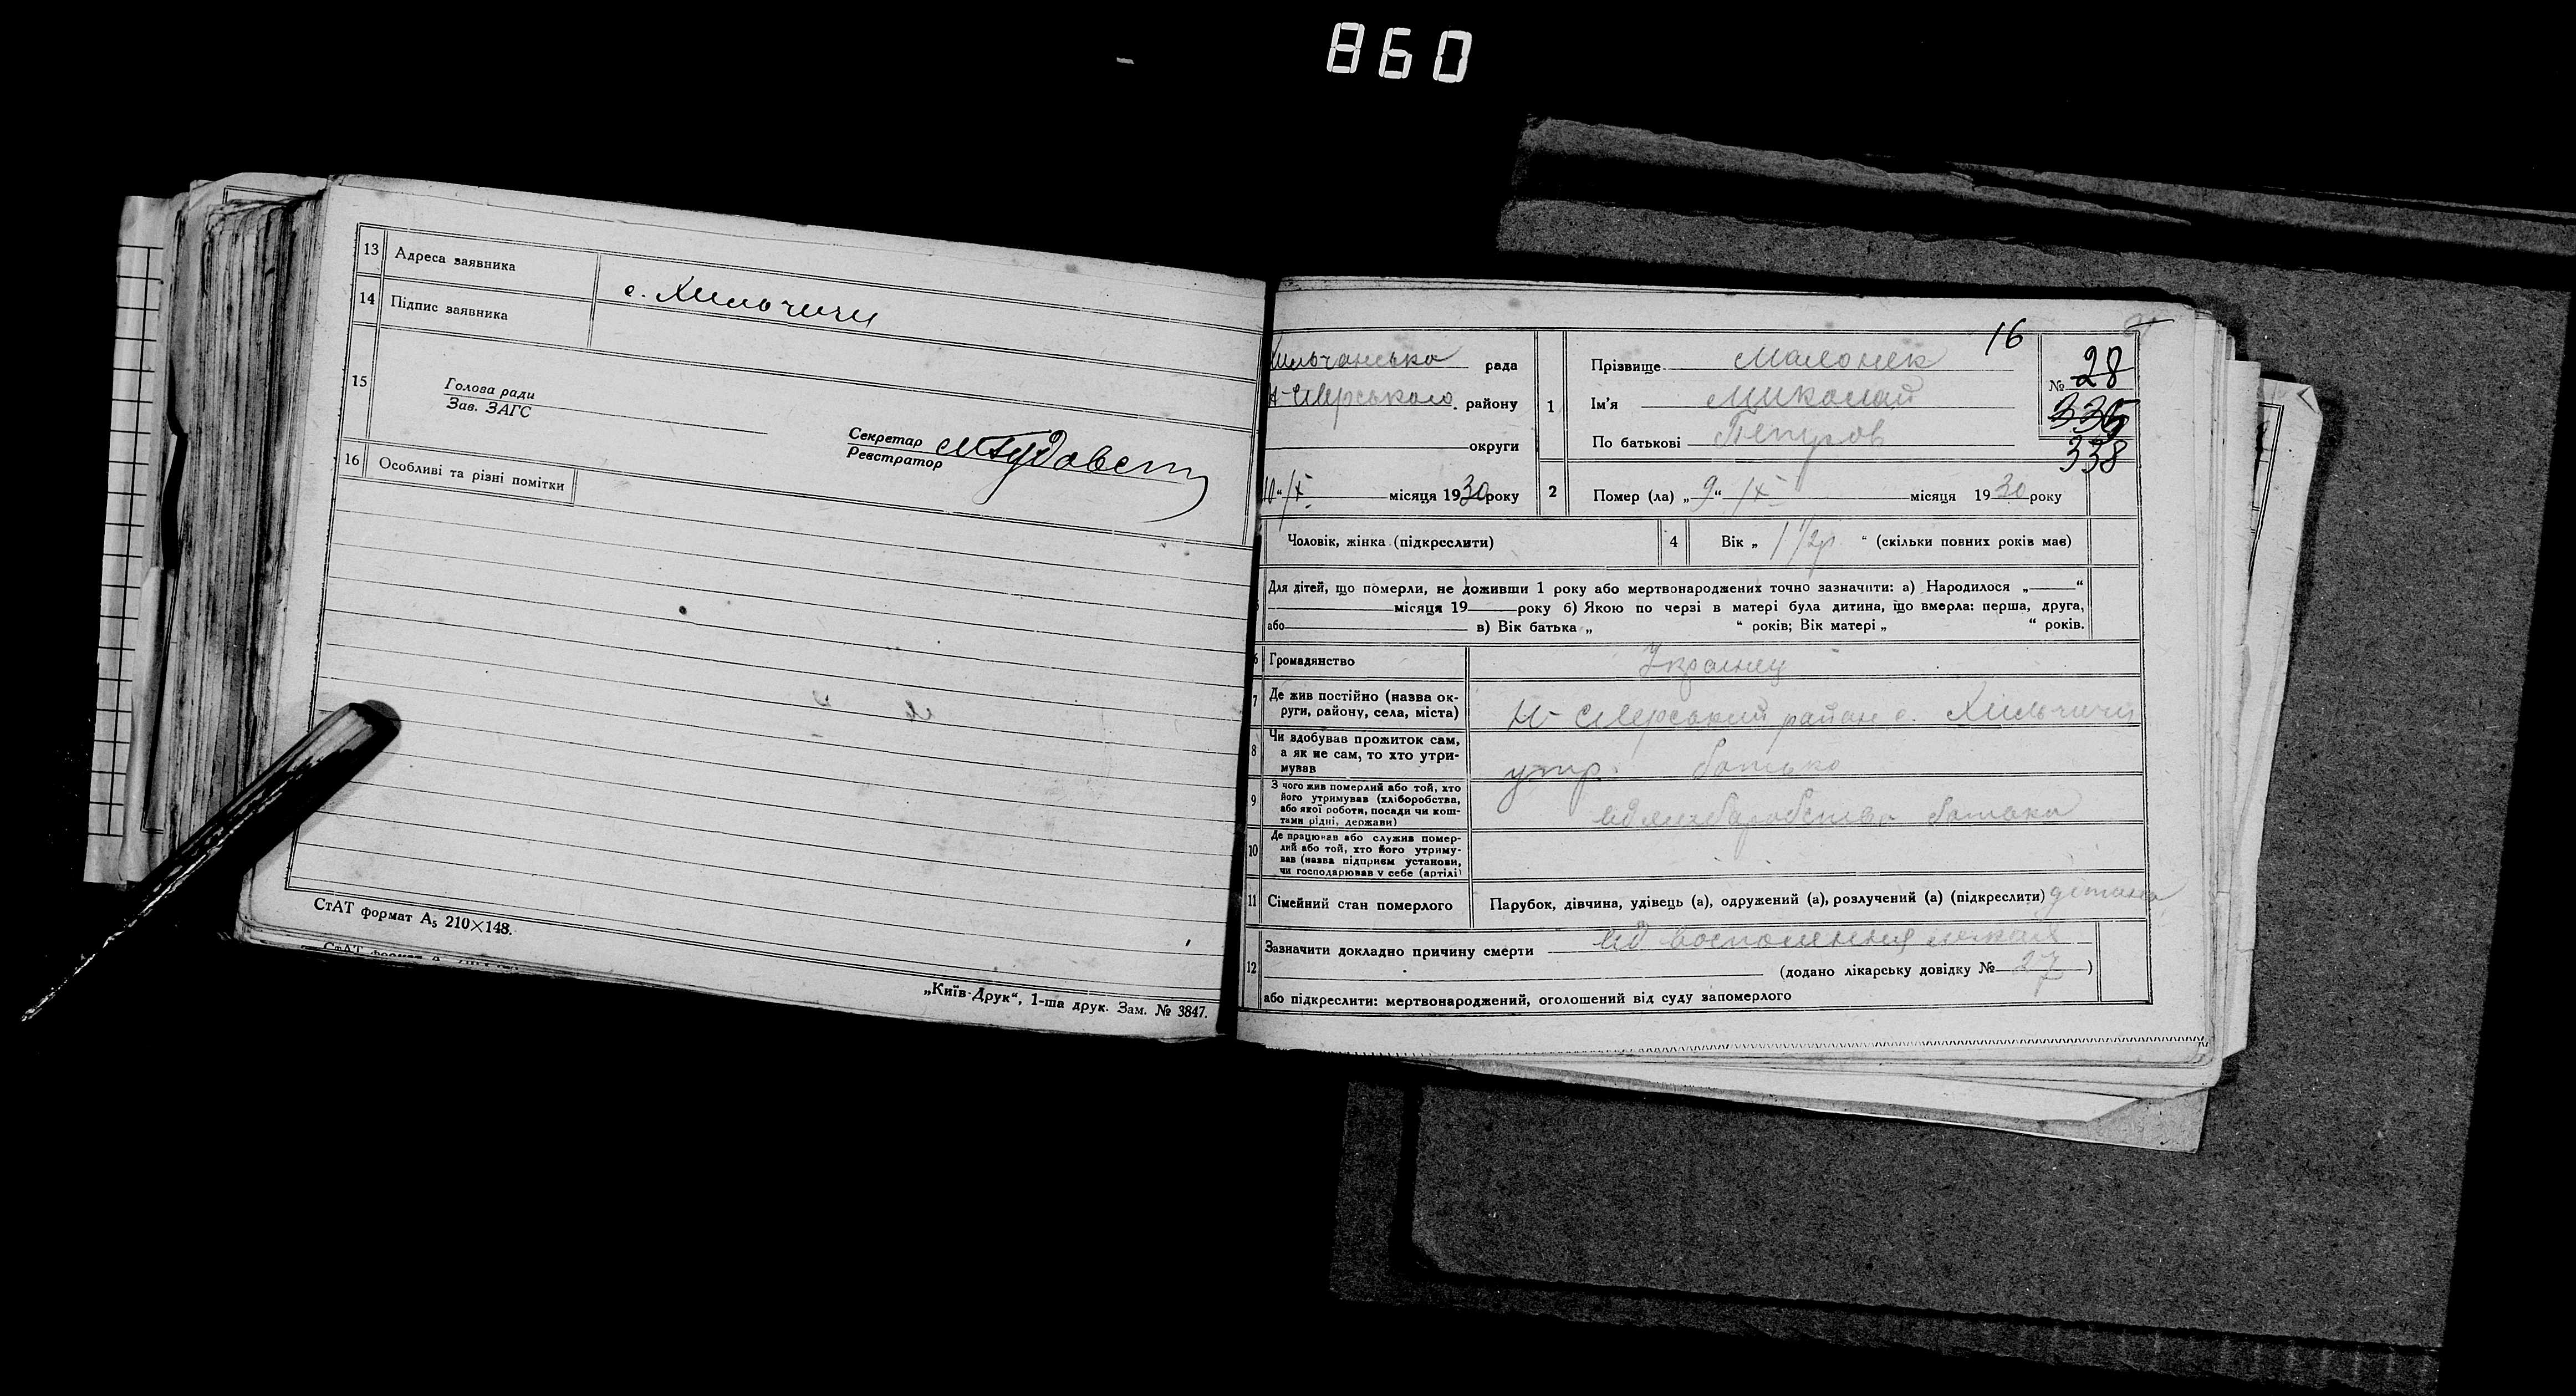 860
13 Адреса заявника
с. Хильчичи
14 Підпис заявника
15
Голова ради
Зав. ЗАГС
Секретар
Реєстратор
16 Особливі та різні помітки
СтАТ формат А₅ 210×148.
СтАТ формат А₅
„Київ-Друк“, 1-ша друк. Зам. № 3847.
16
Хильчанська рада
Н-Сіверського району
округи
10 “ IX місяця 1930 року
1 Прізвище
Ім'я Миколай
По батькові Петров
№ 28
336
338
2 Помер (ла) „ 9 “ IX місяця 1930 року
Чоловік, жінка (підкреслити)
4 Вік „ 1 1/2 р. “ (скільки повних років має)
Для дітей, що померли, не доживши 1 року або мертвонароджених точно зазначити: а) Народилося „ “
місяця 19 року б) Якою по черзі в матері була дитина, що вмерла: перша, друга,
або в) Вік батька „ “ років; Вік матері „ “ років.
6 Громадянство Українец
7 Де жив постійно (назва ок-
руги, району, села, міста)
Н-Сіверський район с. Хильчичи
8 Чи здобував прожиток сам,
а як не сам, то хто утри-
мував
утр. батько
9 З чого жив померлий або той, хто
його утримував (хліборобства,
або якої роботи, посади чи кош-
тами рідні, держави)
від хлібаробства батька
10 Де працював або служив помер-
лий або той, хто його утриму-
вав (назва підприєм установи,
чи господарював у себе (артілі)
11 Сімейний стан померлого
Парубок, дівчина, удівець (а), одружений (а), розлучений (а) (підкреслити) дитина
12 Зазначити докладно причину смерти від восполения легких
(додано лікарську довідку № 27 )
або підкреслити: мертвонароджений, оголошений від суду запомерлого